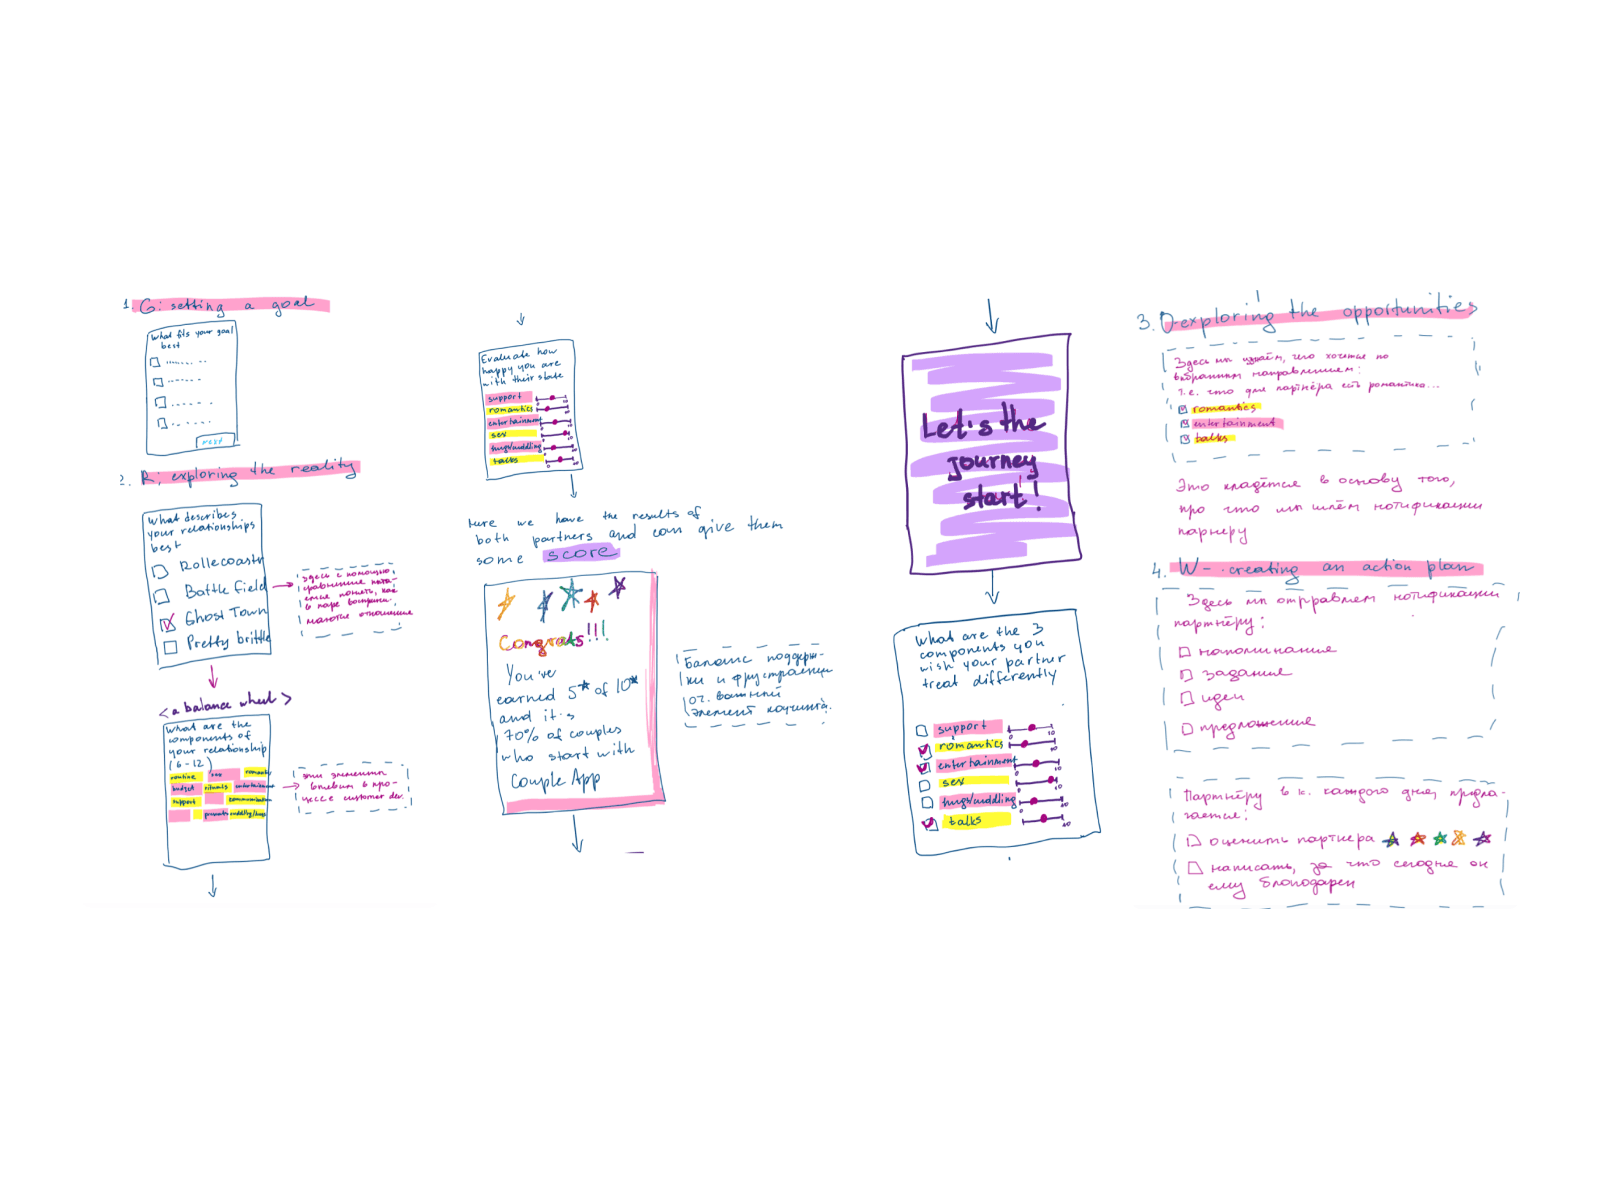 1. G: setting a goal
What fits your goal
best
next
2. R: exploring the reality
What describes
your relationships
best
Rollecoastr
Battle field
Ghost Town
Pretty brittle
здесь с помощью
сравнения
понять, как
в паре
отношения
< a balance wheel >
What are the
components of
your relationship
(6-12)
routine sex romantic
budget rituals entertainment
support communication
cuddling/hugs
эти элементы
в про-
цессе customer dev.
Evaluate how
happy you are
with their state
support
romantics
entertainment
sex
hugs/cuddling
talks
Here we have the results of
both partners and can give them
some score
Congrats!!!
You've
earned 5* of 10*
and it's
70% of couples
who start with
Couple App
Баланс поддерж-
ки и фрустрации
оч. важный
элемент коучинга.
Let's the
journey
start!
What are the 3
components you
wish your partner
treat differently
support
0 10
romantics
0 10
entertainment
0 10
sex
0 10
hugs/cuddling
0 10
talks
0 10
3. O-exploring the opportunities
Здесь мы узнаём, что хочется по
выбранным направлениям:
т.е. что для партнёра есть романтика...
romantics
entertainment
talks
Это кладётся в основу того,
про что мы шлём нотификации
парнеру
4. W-.creating an action plan
Здесь мы отправляем нотификации
партнёру:
напоминание
задание
идеи
предложение
Партнёру в к. каждого дня, предла-
гается:
оценить партнера
написать, за что сегодня он
ему благодарен